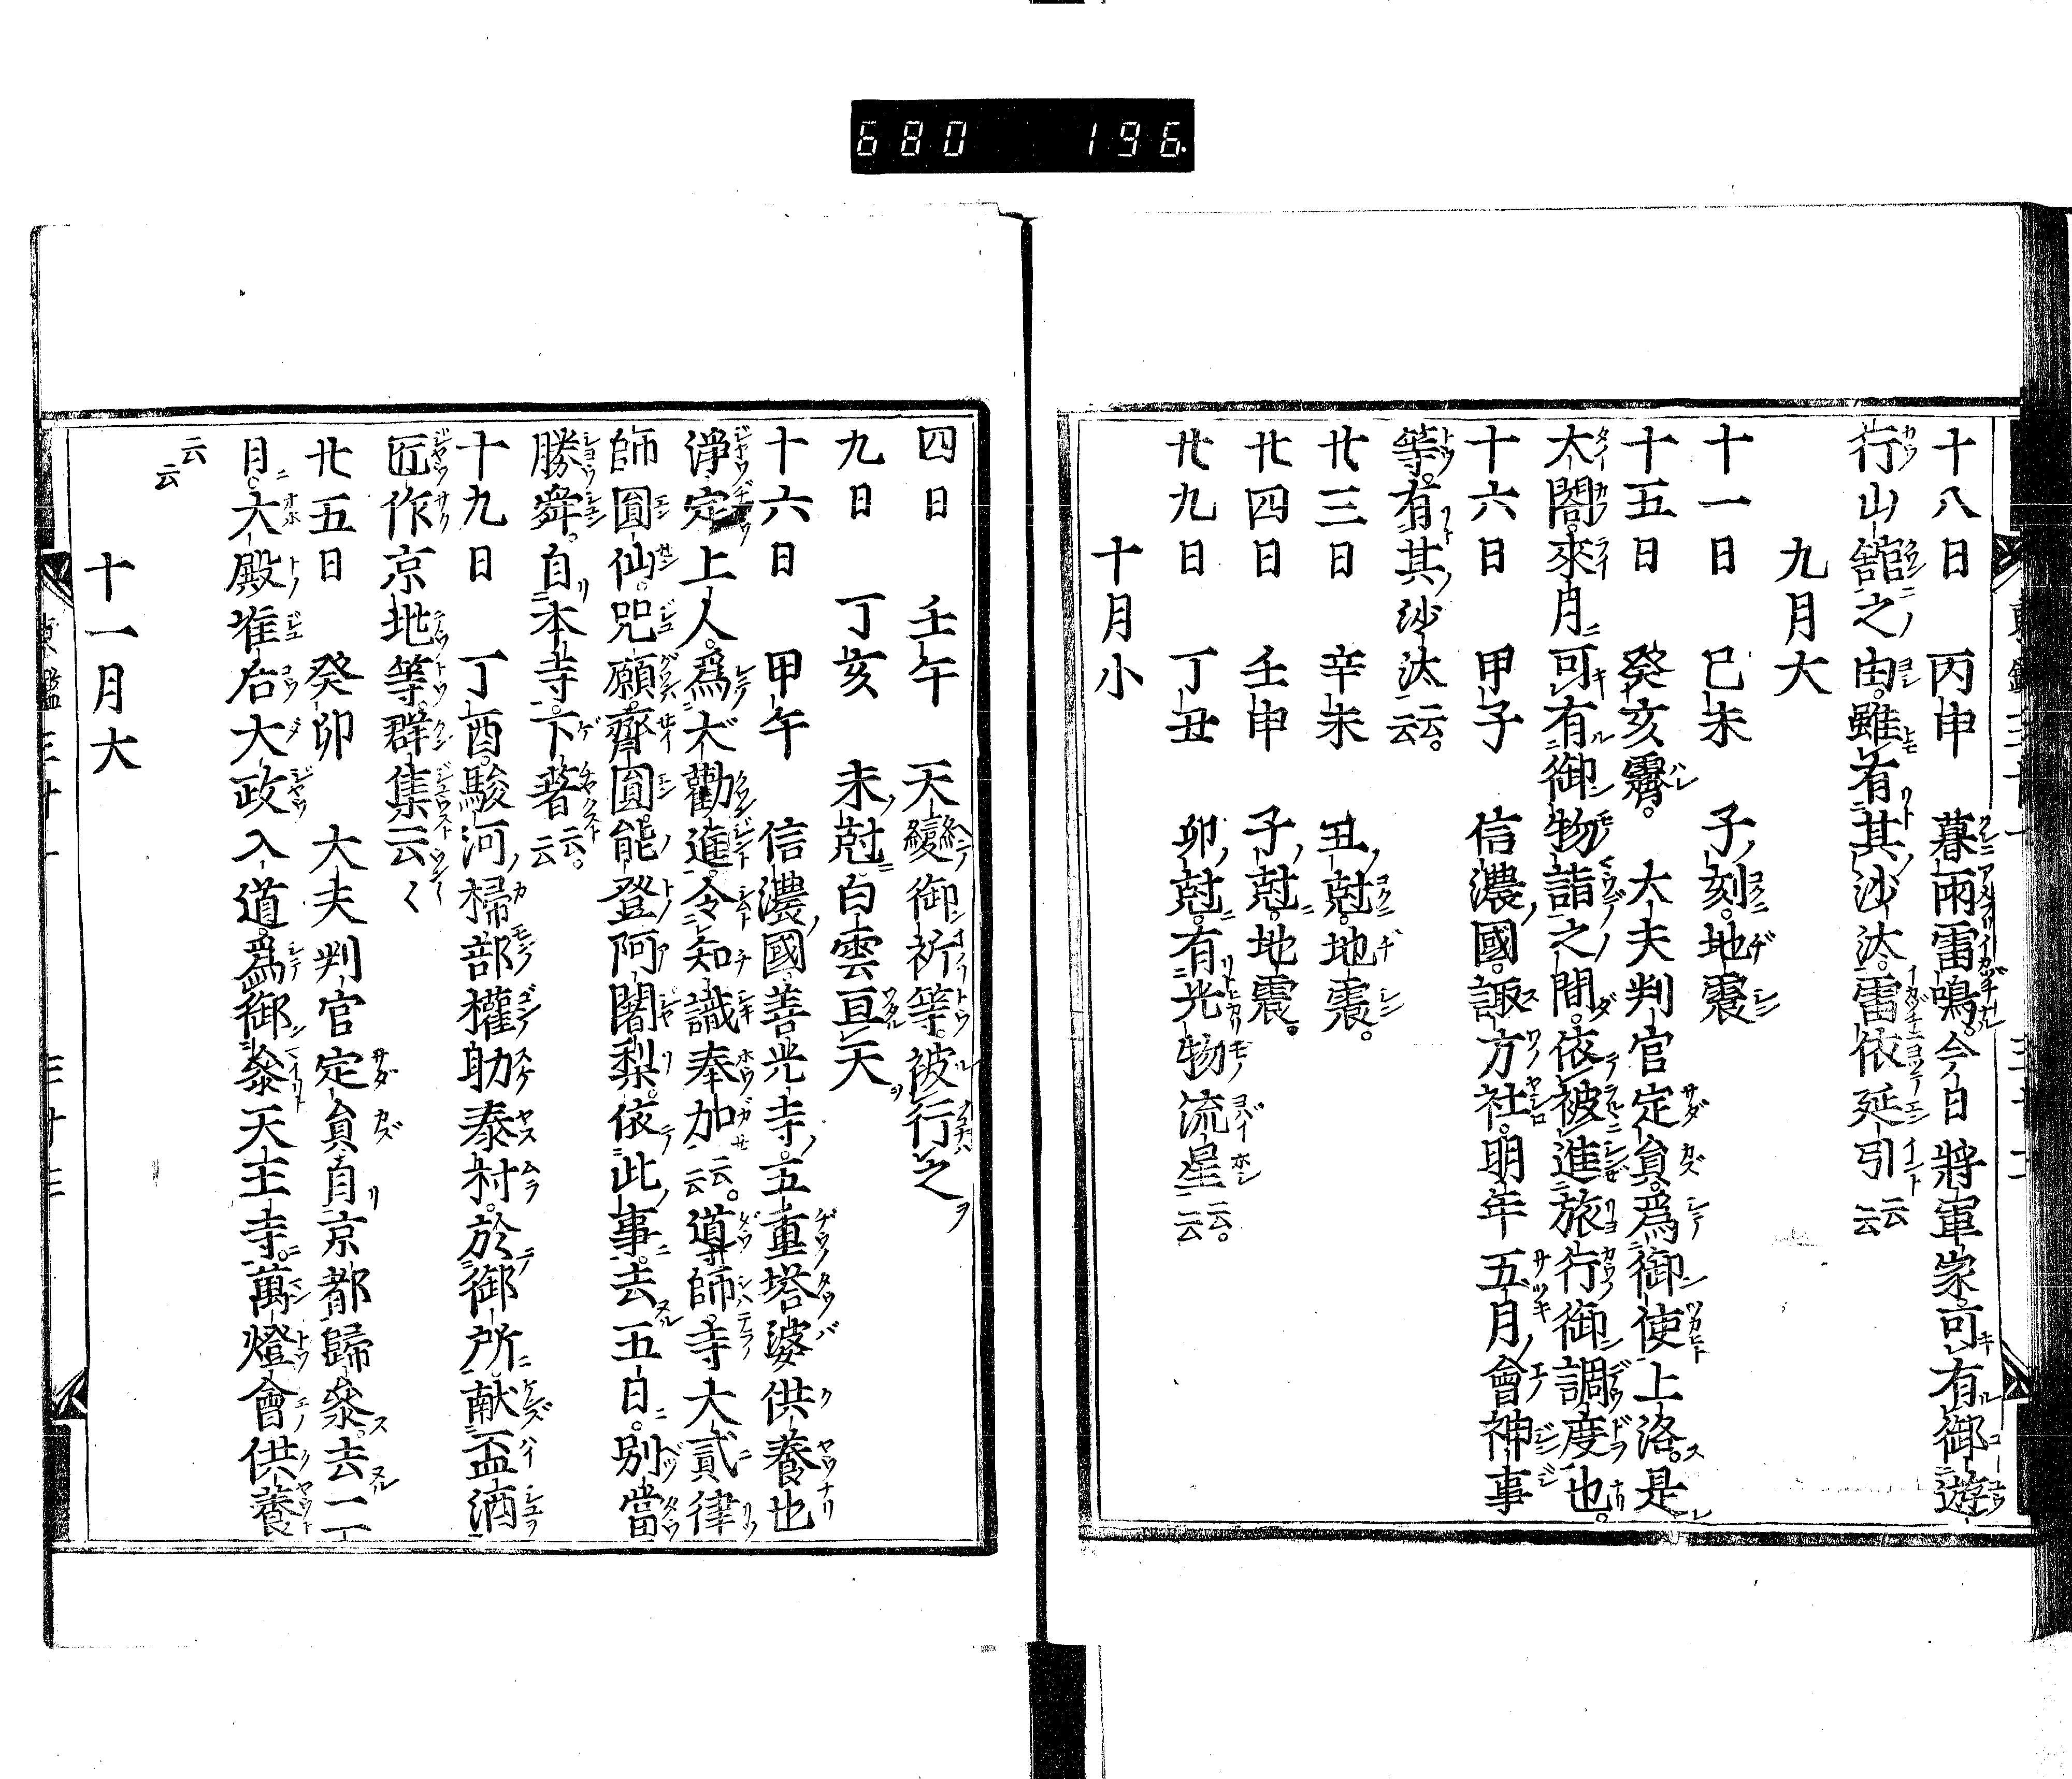 680 196
十八日 丙申 暮雨雷鳴。今日將軍家。可有御遊
行山舘之由。雖有其沙汰。雷依延引云云
九月大
十一日 己未 子刻。地震
十五日 癸亥霽。 大夫判官定員。爲御使上洛。是
太閤。來月可有御物詣之間。依被進旅行御調度也。
十六日 甲子 信濃國。諏方社。明年五月會神事
等。有其沙汰云云。
廿三日 辛未 丑尅。地震。
廿四日 壬申 子尅。地震。
廿九日 丁丑 卯尅。有光物流星云云。
十月小
四日 壬午 天變御祈等。被行之
九日 丁亥 未尅白雲亘天
十六日 甲午 信濃國善光寺。五重塔婆供養也
淨定上人。爲大勸進。令知識奉加云云。導師。寺大貳律
師圓仙。咒願。齊圓。能登阿闍梨。依此事。去五日。別當
勝舜。自本寺。下著云云。
十九日 丁酉。駿河掃部權助泰村。於御所。献盃酒
匠作京地等。群集云〱
廿五日 癸卯 大夫判官定員自京都歸叅。去二
日。大殿准后大政入道。爲御叅天王寺。萬燈會供養
云云
十一月大
東鑑三十一 三十二
東鑑三十一 三十三